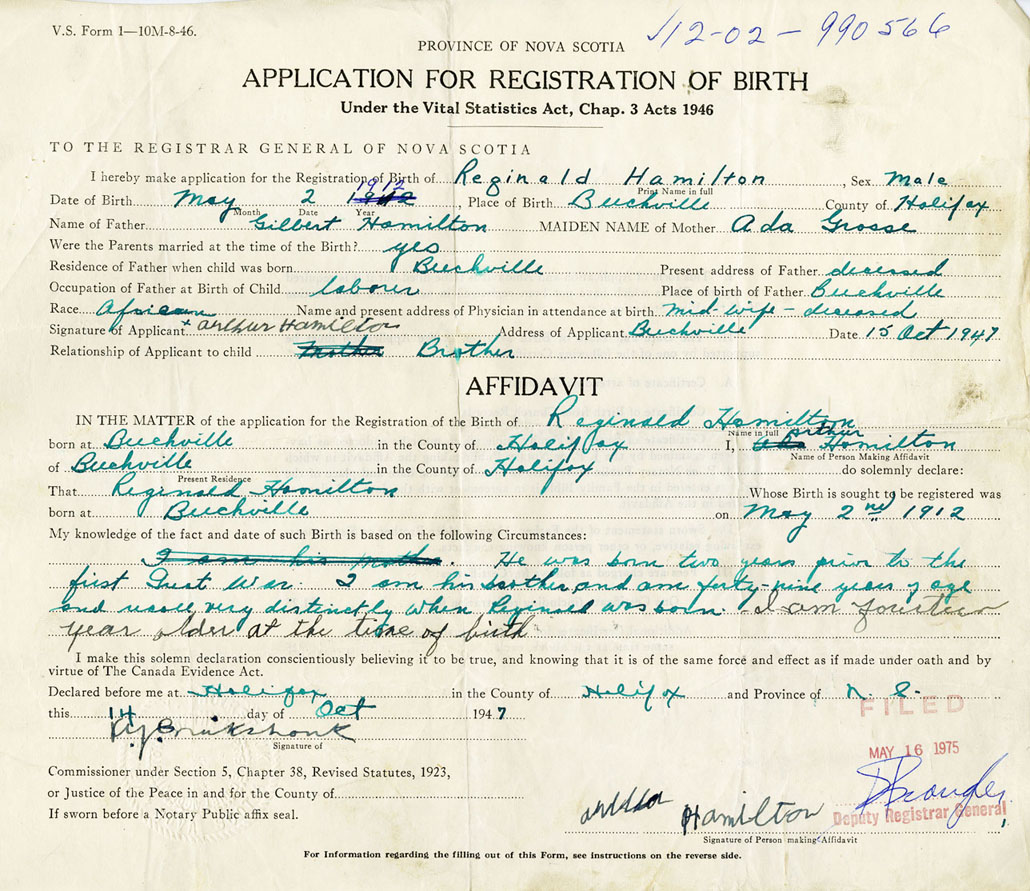 V.S. Form 1—10M-8-46.
112-02-990566
PROVINCE OF NOVA SCOTIA
APPLICATION FOR REGISTRATION OF BIRTH
Under the Vital Statistics Act, Chap. 3 Acts 1946
TO THE REGISTRAR GENERAL OF NOVA SCOTIA
I hereby make application for the Registration of Birth of Reginald Hamilton, Sex Male
Print Name in full
Date of Birth May 2 1912, Place of Birth Beechville County of Halifax
Month Date Year
Name of Father Gilbert Hamilton MAIDEN NAME of Mother Ada Grosse
Were the Parents married at the time of the Birth? yes
Residence of Father when child was born Beechville Present address of Father deceased
Occupation of Father at Birth of Child laborer Place of birth of Father Beechville
Race African Name and present address of Physician in attendance at birth mid-wife - deceased
Signature of Applicant + Arthur Hamilton Address of Applicant Beechville Date 15 Oct 1947
Relationship of Applicant to child Mother Brother
AFFIDAVIT
IN THE MATTER of the application for the Registration of the Birth of Reginald Hamilton
Name in full
born at Beechville in the County of Halifax I, Arthur Hamilton
Name of Person Making Affidavit
of Beechville in the County of Halifax do solemnly declare:
Present Residence
That Reginald Hamilton Whose Birth is sought to be registered was
born at Beechville on May 2nd 1912
My knowledge of the fact and date of such Birth is based on the following Circumstances:
I am his mother. He was born two years prior to the
first Great War. I am his brother and am forty-nine years of age
and recall very distinctly when Reginald was born - I am fourteen
year older at the time of birth
I make this solemn declaration conscientiously believing it to be true, and knowing that it is of the same force and effect as if made under oath and by
virtue of The Canada Evidence Act.
Declared before me at Halifax in the County of Halifax and Province of N. S.
this 14 day of Oct 1947
Signature of
FILED
MAY 16 1975
Deputy Registrar General
Commissioner under Section 5, Chapter 38, Revised Statutes, 1923,
or Justice of the Peace in and for the County of
If sworn before a Notary Public affix seal.
Arthur Hamilton
Signature of Person making Affidavit
For Information regarding the filling out of this Form, see instructions on the reverse side.